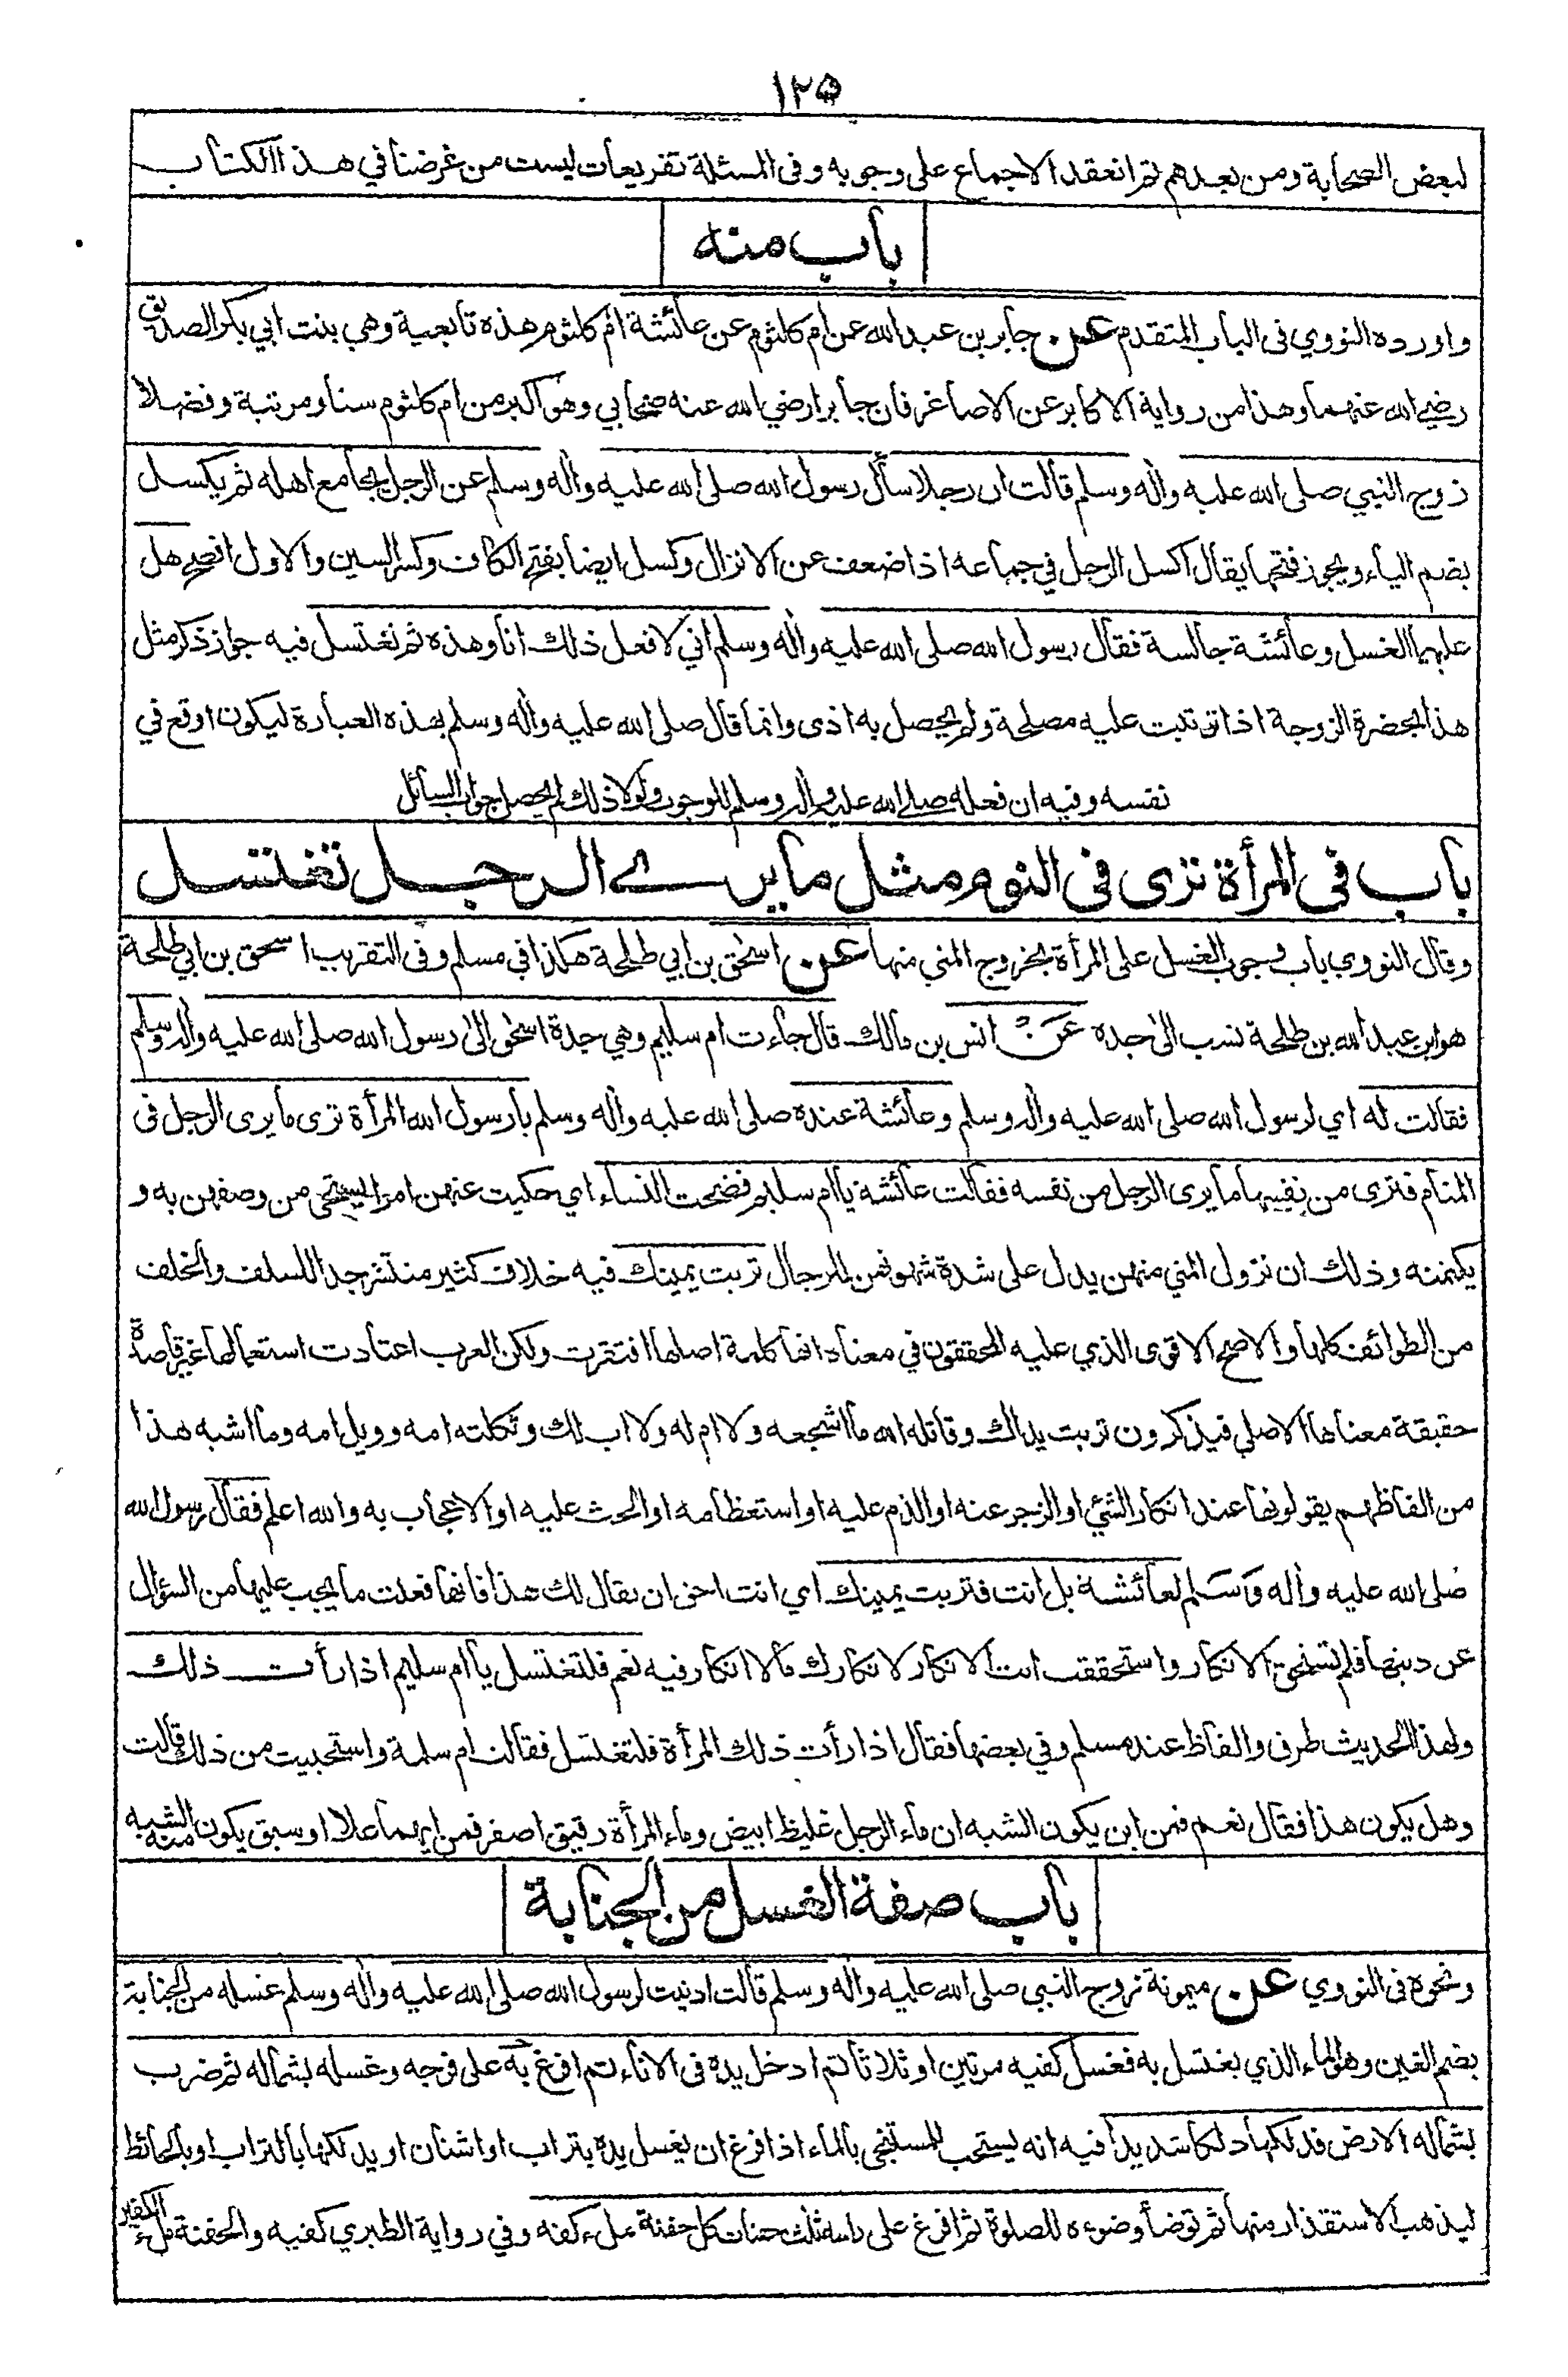 ١٢٥
لبعض الصحابة ومن بعدهم ثم انعقد الاجماع على وجوبه وفى المسئلة تفريعات ليست من غرضنا في هذا الكتاب
باب منه
واورده النووي فى الباب المتقدم عن جابر بن عبد الله عن ام كلثوم عن عائشة ام كلثوم هذه تابعية وهي بنت ابي بكر الصديق
رضي الله عنهما وهذا من رواية الاكابر عن الاصاغر فان جابرا رضي الله عنه صحابي وهو اكبر من ام كلثوم سنا ومرتبة وفضلا
زوج النبي صلى الله عليه واٰله وسلم قالت ان رجلا سأل رسول الله صلى الله عليه واٰله وسلم عن الرجل يجامع اهله ثم يكسل
بضم الياء ويجوز فتحها يقال اكسل الرجل في جماعه اذا ضعف عن الانزال وكسل ايضا بفتح الكاف وكسر السين والاول افصح هل
عليهما الغسل وعائشة جالسة فقال رسول الله صلى الله عليه واٰله وسلم اني لافعل ذلك انا وهذه ثم نغتسل فيه جواز ذكر مثل
هذا بحضرة الزوجة اذا ترتبت عليه مصلحة ولم يحصل به اذى وانما قال صلى الله عليه واٰله وسلم بهذه العبارة ليكون اوقع في
نفسه وفيه ان فعله صلى الله عليه واٰله وسلم للوجوب ولولا ذلك لم يحصل جواب السائل
باب فى المرأة ترى فى النوم مثل ما يرى الرجل تغتسل
وقال النووي باب وجوب الغسل على المرأة بخروج المني منها عن اسحٰق بن ابي طلحة هكذا في مسلم وفى التقريب اسحق بن ابي طلحة
هو ابن عبد الله بن طلحة نسب الى جده عَنْ انس بن مالك قال جاءت ام سليم وهي جدة اسحٰق الى رسول الله صلى الله عليه واٰله وسلم
فقالت له اي لرسول الله صلى الله عليه واٰله وسلم وعائشة عنده صلى الله عليه واٰله وسلم يا رسول الله المرأة ترى ما يرى الرجل فى
المنام فترى من نفسها ما يرى الرجل من نفسه فقالت عائشة يا ام سليم فضحت النساء اي حكيت عنهن امرا يستحيى من وصفهن به و
يكتمنه وذلك ان نزول المني منهن يدل على شدة شهوتهن للرجال تربت يمينك فيه خلاف كثير منتشر جدا للسلف والخلف
من الطوائف كلها والاصح الاقوى الذي عليه المحققون في معناه انها كلمة اصلها افتقرت ولكن العرب اعتادت استعمالها غير قاصدة
حقيقة معناها الاصلي فيذكرون تربت يداك وقاتله الله ما اشجعه ولا ام له ولا اب لك وثكلته امه وويل امه وما اشبه هذا
من الفاظهم يقولونها عند انكار الشئ او الزجر عنه او الذم عليه او استعظامه او الحث عليه او الاعجاب به والله اعلم فقال رسول الله
صلى الله عليه واٰله وسلم لعائشة بل انت فتربت يمينك اي انت احق ان يقال لك هذا فانها فعلت ما يجب عليها من السؤال
عن دينها فلم تستحق الانكار واستحققت انت الانكار لانكارك ما لا انكار فيه نعم فلتغتسل يا ام سليم اذا رأت ذلك
ولهذا الحديث طرف والفاظ عند مسلم وفي بعضها فقال اذا رأت ذلك المرأة فلتغتسل فقالت ام سلمة واستحييت من ذلك قالت
وهل يكون هذا فقال نعم فمن اين يكون الشبه ان ماء الرجل غليظ ابيض وماء المرأة رقيق اصفر فمن ايهما علا او سبق يكون منه الشبه
باب صفة الغسل من الجنابة
ونحوه فى النووي عن ميمونة زوج النبي صلى الله عليه واٰله وسلم قالت ادنيت لرسول الله صلى الله عليه واٰله وسلم غسله من الجنابة
بضم الغين وهو الماء الذي يغتسل به فغسل كفيه مرتين او ثلاثا ثم ادخل يده فى الاناء ثم افرغ به على فرجه وغسله بشماله ثم ضرب
بشماله الارض فدلكها دلكا شديدا فيه انه يستحب للمستنجى بالماء اذا فرغ ان يغسل يده بتراب او اشنان او يدلكها بالتراب او بالحائط
ليذهب الاستقذار منها ثم توضأ وضوءه للصلوة ثم افرغ على راسه ثلث حفنات كل حفنة ملء كفه وفي رواية الطبري كفيه والحفنة ملء الكفين